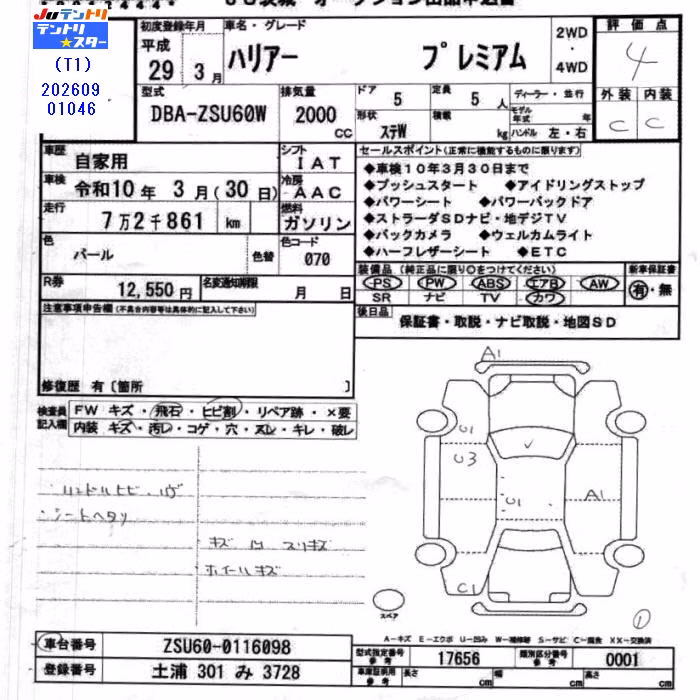 JU テントリ
テントリ★スター
(T1)
202609
01046
初度登録年月 車名・グレード 2WD・4WD 評価点
平成 29 3月 ハリアー プレミアム 4
型式 排気量 ドア 5 定員 5人 ディーラー・並行 外装 内装
DBA-ZSU60W 2000 CC 形状 ステW 積載 kg モデル年式 年 ハンドル 左・右 C C
車歴 自家用 シフト IAT セールスポイント(正常に機能するものに限ります)
車検 令和10年 3月(30日) 冷房 AAC
走行 7万2千861 km 燃料 ガソリン
色 パール 色替 色コード 070
◆車検10年3月30日まで
◆プッシュスタート ◆アイドリングストップ
◆パワーシート ◆パワーバックドア
◆ストラーダSDナビ・地デジTV
◆バックカメラ ◆ウェルカムライト
◆ハーフレザーシート ◆ETC
R券 12,550円 名変通知期限 月 日
装備品(純正品に限り○をつけてください) 新車保証書
PS PW ABS エアB AW 有・無
SR ナビ TV カワ
注意事項申告欄(不具合内容等は具体的に記入して下さい)
後日品 保証書・取説・ナビ取説・地図SD
修復歴 有〔箇所 〕
検査員記入欄 FW キズ・飛石・ヒビ割・リペア跡・×要
内装 キズ・汚レ・コゲ・穴・スレ・キレ・破レ
シートヘタリ
キズ 凹 スリキズ
ホイールキズ
A1
U1
U3
U1
A1
C1
スペア
1
A−キズ E−エクボ U−凹み W−補修跡 S−サビ C−腐食 XX−交換済
車台番号 ZSU60-0116098 型式指定番号 参考 17656 類別区分番号 参考 0001
登録番号 土浦 301 み 3728 車庫証明用 参考 長さ cm 幅 cm 高さ cm